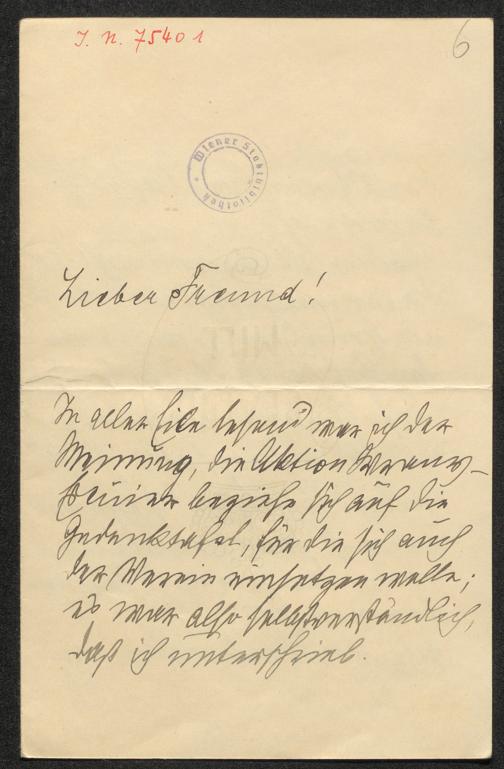 J. N. 75401
6
Wiener Stadtbibliothek
Lieber Freund!
In aller Eile lesend war ich der
Meinung, die Aktion
beziehe sich auf die
Gedenktafel, für die sich auch
der Verein einsetzen wolle;
es war also selbstverständlich,
daß ich unterschrieb.